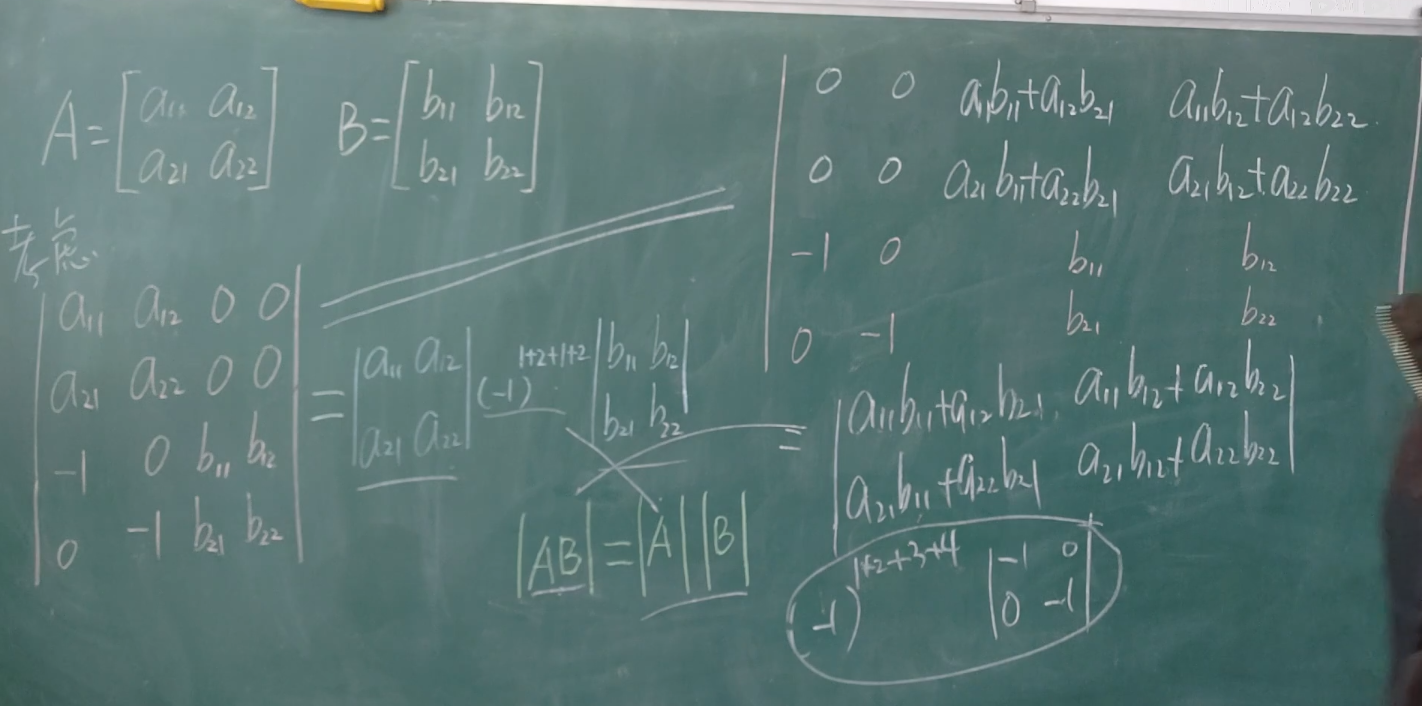 A = [a₁₁ a₁₂
a₂₁ a₂₂]
B = [b₁₁ b₁₂
b₂₁ b₂₂]
考虑
|a₁₁ a₁₂ 0 0
a₂₁ a₂₂ 0 0
-1 0 b₁₁ b₁₂
0 -1 b₂₁ b₂₂|
= |a₁₁ a₁₂
a₂₁ a₂₂|
(-1)¹⁺²⁺¹⁺²
|b₁₁ b₁₂
b₂₁ b₂₂|
|AB| = |A| |B|
=
|0 0 a₁b₁₁+a₁₂b₂₁ a₁₁b₁₂+a₁₂b₂₂
0 0 a₂₁b₁₁+a₂₂b₂₁ a₂₁b₁₂+a₂₂b₂₂
-1 0 b₁₁ b₁₂
0 -1 b₂₁ b₂₂|
= |a₁₁b₁₁+a₁₂b₂₁ a₁₁b₁₂+a₁₂b₂₂
a₂₁b₁₁+a₂₂b₂₁ a₂₁b₁₂+a₂₂b₂₂|
(-1)¹⁺²⁺³⁺⁴ |-1 0
0 -1|